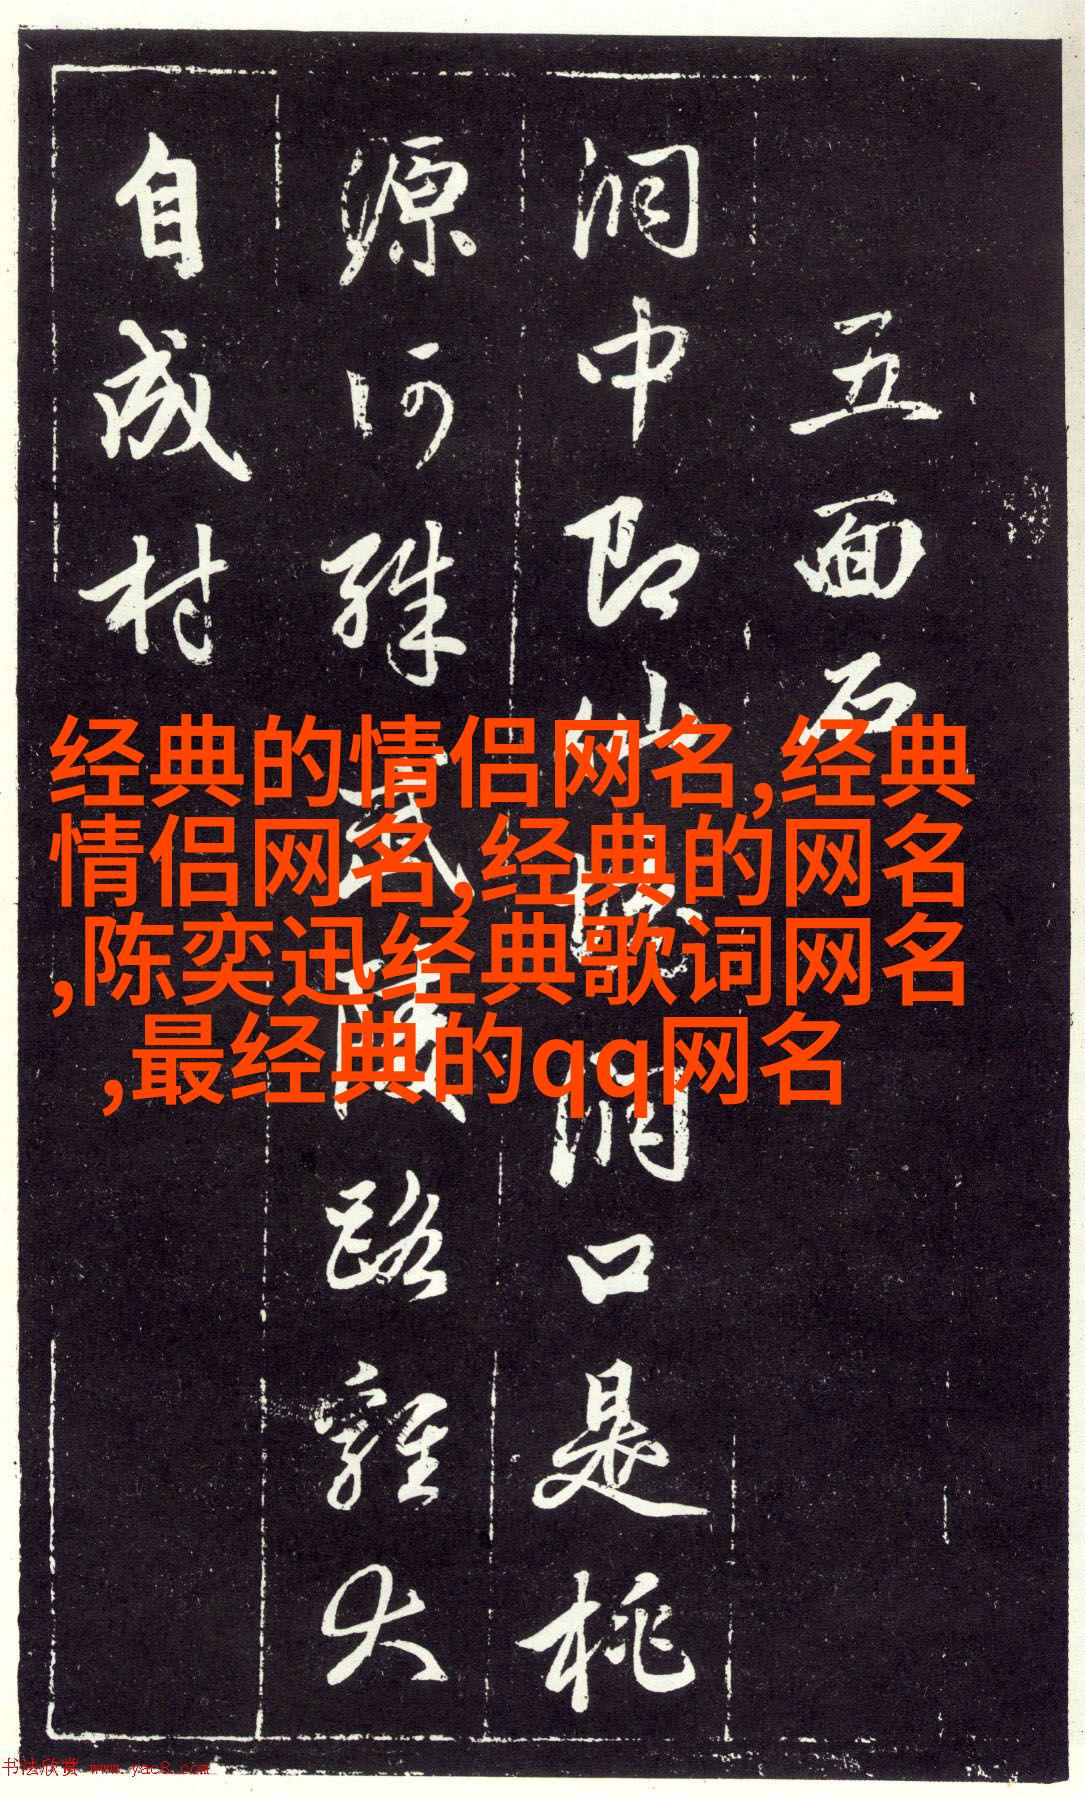 五面石
洞中即仙境洞口是桃
源何殊武陵路雞犬
自成村
经典的情侣网名,经典
情侣网名,经典的网名
,陈奕迅经典歌词网名
,最经典的qq网名
书法欣赏 www.yac8.com